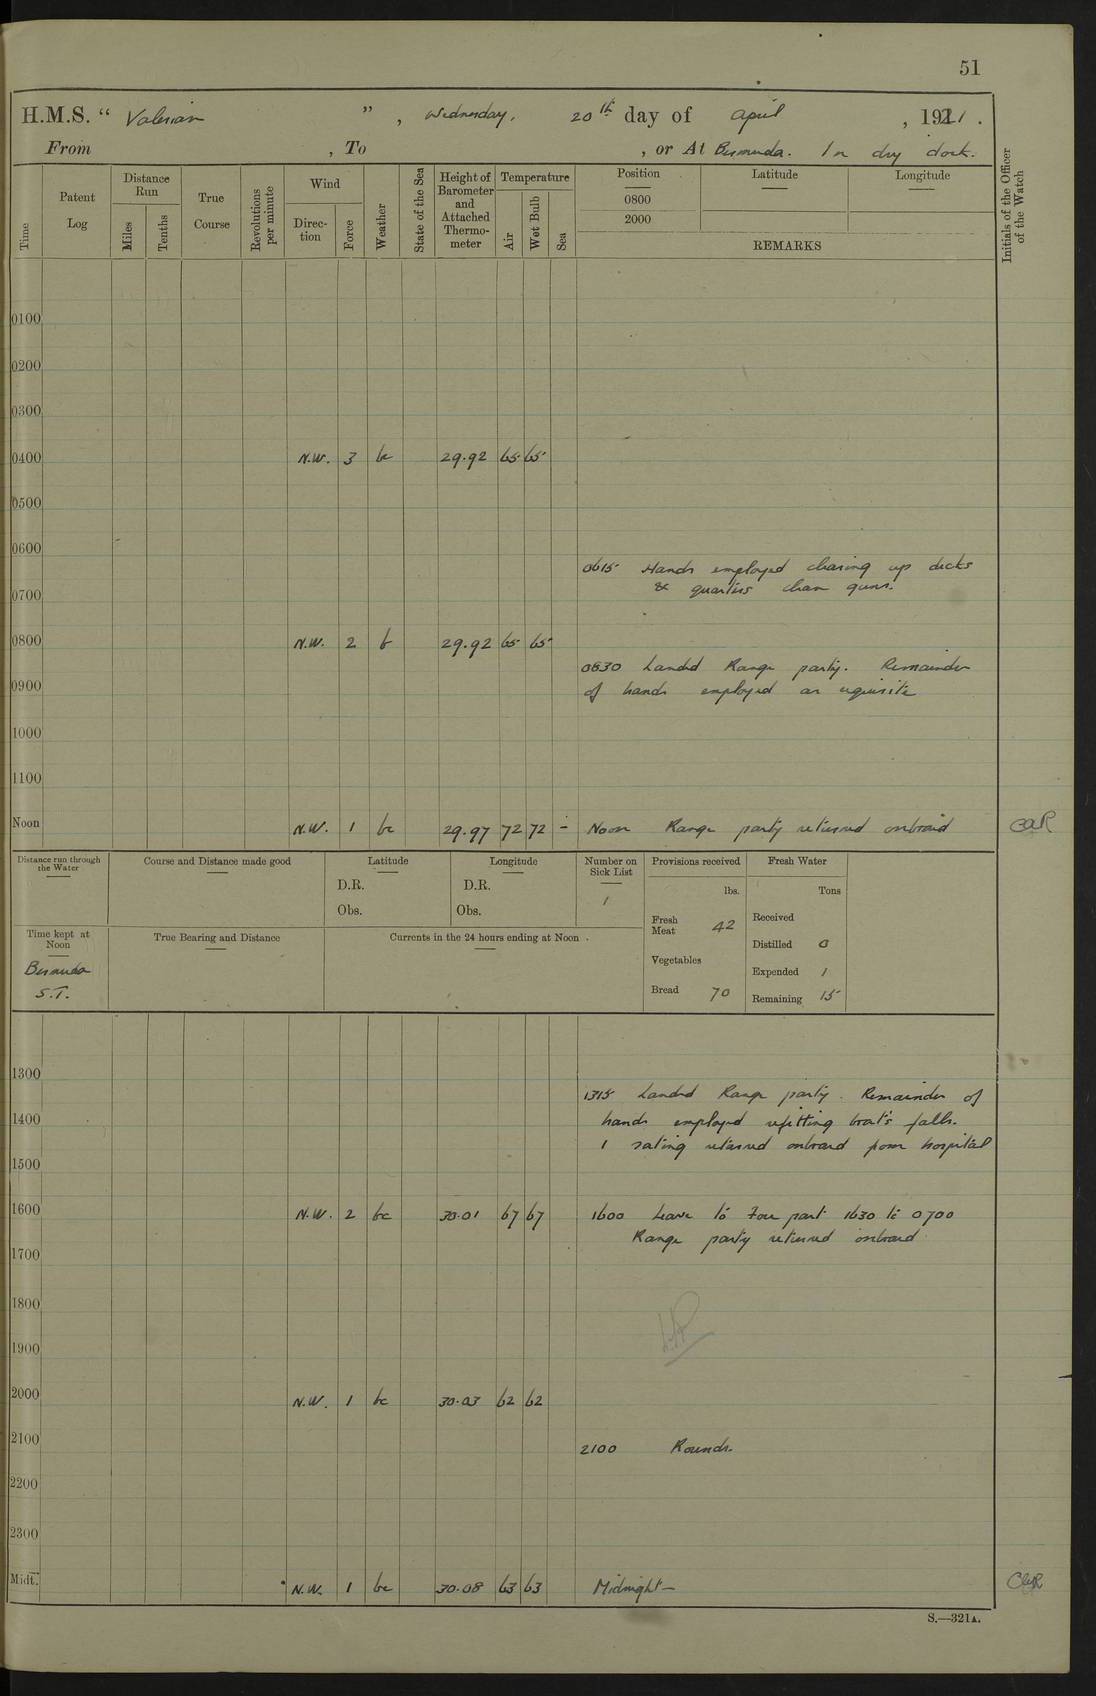 51
H.M.S. “ Valerian ” , Wednesday, 20th day of April , 1921 .
From , To , or At Bermuda. In dry dock.
Time
Patent Log
Distance Run
Miles
Tenths
True Course
Revolutions per minute
Wind
Direction
Force
Weather
State of the Sea
Height of Barometer and Attached Thermometer
Temperature
Air
Wet Bulb
Sea
Position
0800
2000
Latitude
Longitude
REMARKS
Initials of the Officer of the Watch
0100
0200
0300
0400 N.W. 3 bc 29.92 65 65
0500
0600
0615 Hands employed clearing up decks
& quarters clean guns.
0700
0800 N.W. 2 b 29.92 65 65
0830 Landed Range party. Remainder
of hands employed as requisite
0900
1000
1100
Noon N.W. 1 bc 29.97 72 72 - Noon Range party returned onboard
Distance run through the Water
Course and Distance made good
Latitude
D.R.
Obs.
Longitude
D.R.
Obs.
Number on Sick List
1
Provisions received
lbs.
Fresh Meat 42
Vegetables
Bread 70
Fresh Water
Tons
Received
Distilled 0
Expended 1
Remaining 15
Time kept at Noon
Bermuda
S.T.
True Bearing and Distance
Currents in the 24 hours ending at Noon .
1300
1315 Landed Range party. Remainder of
hands employed refitting boat's falls.
1 rating returned onboard from hospital
1400
1500
1600 N.W. 2 bc 30.01 67 67 1600 Leave to Four part 1630 to 0700
Range party returned onboard
1700
1800
1900
2000 N.W. 1 bc 30.03 62 62
2100 2100 Rounds.
2200
2300
Midt. N.W. 1 bc 30.08 63 63 Midnight—
S.—321A.